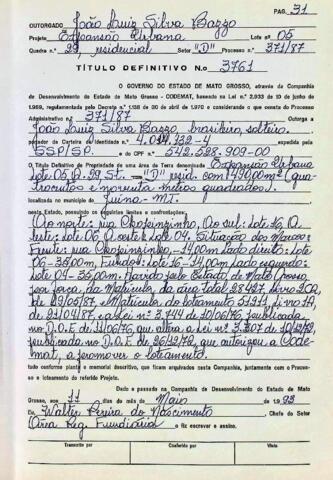 PAG. 31
OUTORGADO João Luiz Silva Bazzo
Projeto Expansão Urbana Lote nº 05
Quadra n.º 29 residencial Setor "D" Processo nº 371/87
TÍTULO DEFINITIVO No. 3761
O GOVERNO DO ESTADO DE MATO GROSSO, através da Companhia
de Desenvolvimento do Estado de Mato Grosso - CODEMAT, baseado na Lei n.º 2.933 de 10 de junho de
1969, regulamentada pelo Decreto n.º 1.138 de 30 de abril de 1970 e considerando o que consta do Processo
Administrativo n.º 371/87 Outorga a
João Luiz Silva Bazzo, brasileiro, solteiro,
portador da Carteira de Identidade n.º 4.014.132-4 expedida pela
SSP/SP. e do CPF n.º 542.528.909-00
O Título Definitivo de Propriedade de uma área de Terra denominada Expansão Urbana
lote 05 Q. 29 St. "D" resid. com 490,00m² (qua-
trocentos e noventa metros quadrados).
localizada no município de Juina - MT.
neste Estado, possuindo os seguintes limites e confrontações:
Ao norte: rua ao sul: lote 16 a
leste: lote 06 a oeste: lote 04. Situação dos Marcos:
Frente: rua 14,00m Lado direito: lote
06 - 35,00m, Fundos: lote 16 - 14,00m Lado esquerdo:
lote 04 - 35,00m. Havido pelo Estado de Mato Grosso,
por força da Matrícula da área total 28.427, livro 2
de /05/87 e Matrícula do loteamento 51.911, livro
de 21/04/87, e a Lei nº 3.744 de 10/06/76 publicada
no D.O.E. de 11/06/76 que altera a Lei nº 3.307 de
publicada no D.O.E. de 26/12/72, que autorizou a Code-
mat, a promover o loteamento.
tudo conforme planta e memorial descritivo, que ficam arquivados nesta Companhia, juntamente com o Proces-
so e loteamento do referido Projeto.
Dado e passado na Companhia de Desenvolvimento do Estado de Mato
Grosso, aos 11 dias do mês de Maio de 1.993
Eu, Walter Pereira do Nascimento Chefe do Setor
Área Reg. Fundiária o fiz escrever e assino.
Transcrito por Conferido por Visto